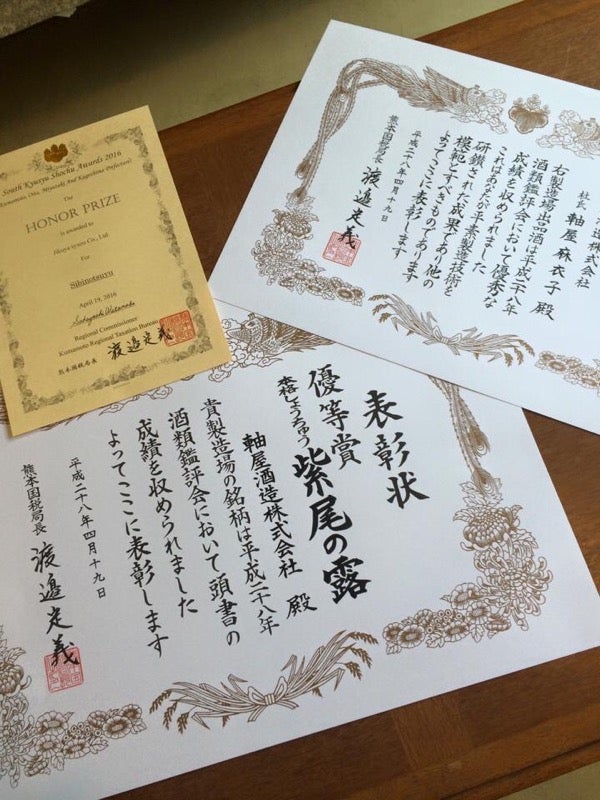 South Kyusyu Shochu Awards 2016
(Kumamoto, Oita, Miyazaki And Kagoshima Prefecture)
The
HONOR PRIZE
is awarded to
Jikuya syuzo Co., Ltd.
For
Sibinotsuyu
April 19, 2016
Sadayoshi Watanabe
Regional Commissioner
Kumamoto Regional Taxation Bureau
熊本国税局長
渡邉定義
株式会社
社長 軸屋麻衣子 殿
右製造場出品酒は平成二十八年
酒類鑑評会において優秀な
成績を収められました
これはあなたが平素製造技術を
研鑽された成果であり他の
模範とすべきものであります
よってここに表彰します
平成二十八年四月十九日
熊本国税局長 渡邉定義
表彰状
優等賞
本格しょうちゅう 紫尾の露
軸屋酒造株式会社 殿
貴製造場の銘柄は平成二十八年
酒類鑑評会において頭書の
成績を収められました
よってここに表彰します
平成二十八年四月十九日
熊本国税局長 渡邉定義